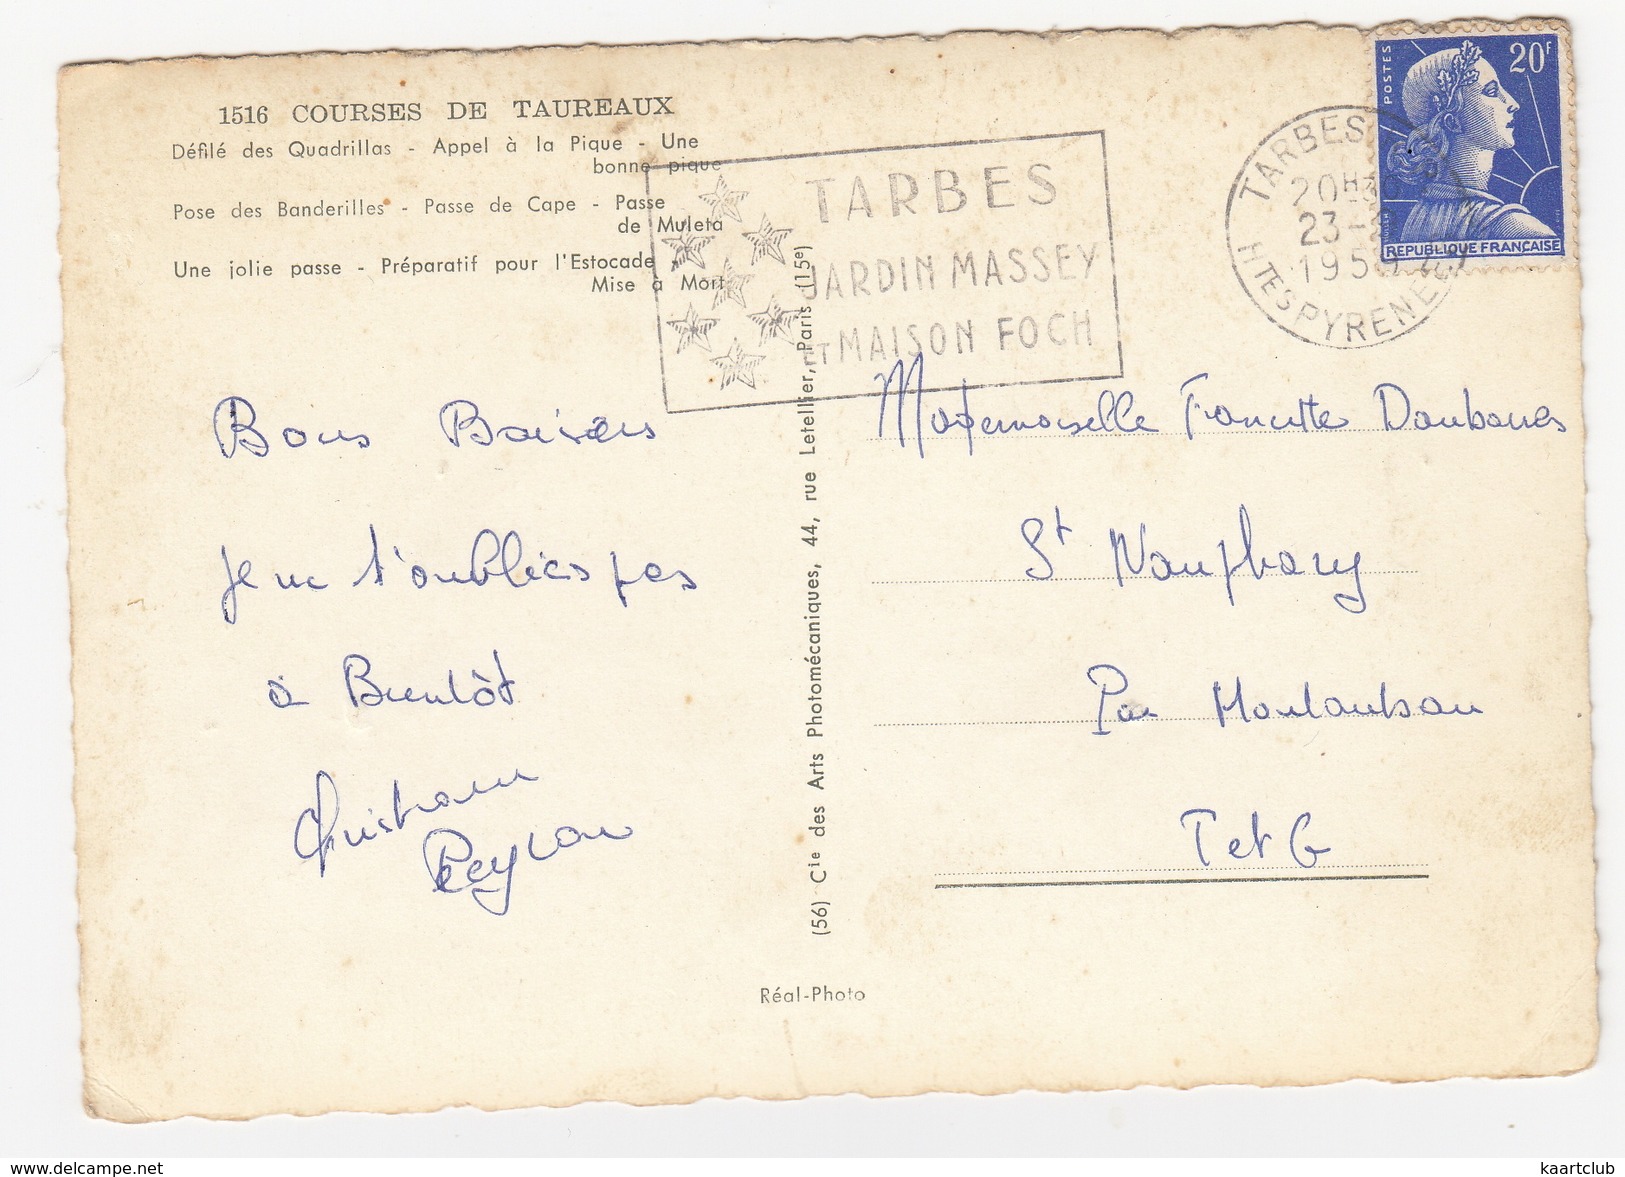 1516 COURSES DE TAUREAUX
Défilé des Quadrillas - Appel à la Pique - Une
bonne pique
Pose des Banderilles - Passe de Cape - Passe
de Muleta
Une jolie passe - Préparatif pour l'Estocade
Mise à Mort
TARBES
JARDIN MASSEY
ET MAISON FOCH
TARBES
20H
23-
195
HTES PYRENEES
POSTES
20F
REPUBLIQUE FRANÇAISE
Bons Baisers
je ne t'oublies pas
à Bientôt
Peyrou
(56) Cie des Arts Photomécaniques, 44, rue Letellier, Paris (15e)
Réal-Photo
Mademoiselle Francette
St Nauphary
Par Montauban
T et G
www.delcampe.net
kaartclub